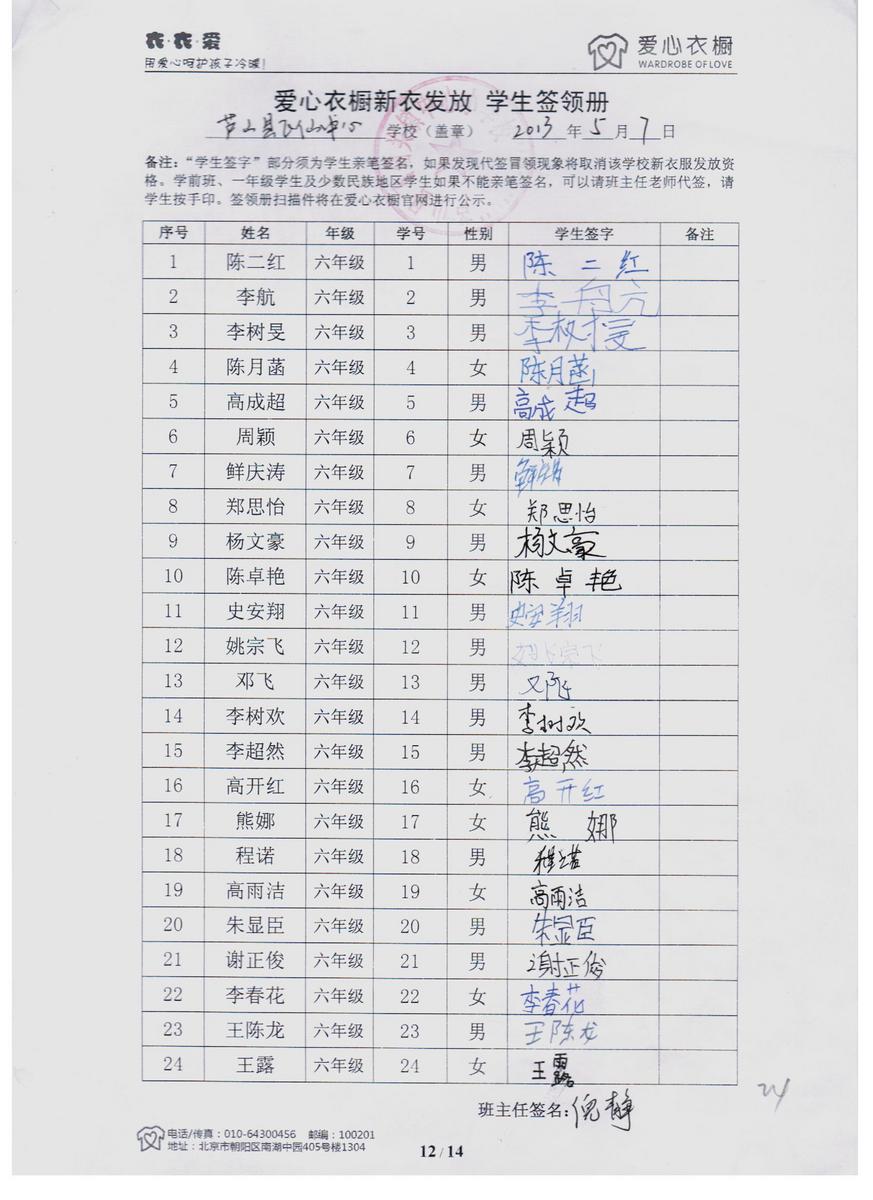 衣·衣·爱
用爱心呵护孩子冷暖!
爱心衣橱
WARDROBE OF LOVE
爱心衣橱新衣发放 学生签领册
芦山县飞仙中心 学校（盖章） 2013 年 5 月 7 日
备注：“学生签字”部分须为学生亲笔签名，如果发现代签冒领现象将取消该学校新衣服发放资
格。学前班、一年级学生及少数民族地区学生如果不能亲笔签名，可以请班主任老师代签，请
学生按手印。签领册扫描件将在爱心衣橱官网进行公示。
序号 姓名 年级 学号 性别 学生签字 备注
1 陈二红 六年级 1 男 陈二红
2 李航 六年级 2 男 李航
3 李树旻 六年级 3 男
4 陈月菡 六年级 4 女 陈月菡
5 高成超 六年级 5 男 高成超
6 周颖 六年级 6 女 周颖
7 鲜庆涛 六年级 7 男
8 郑思怡 六年级 8 女 郑思怡
9 杨文豪 六年级 9 男 杨文豪
10 陈卓艳 六年级 10 女 陈卓艳
11 史安翔 六年级 11 男 史安翔
12 姚宗飞 六年级 12 男 姚宗飞
13 邓飞 六年级 13 男 邓飞
14 李树欢 六年级 14 男 李树欢
15 李超然 六年级 15 男 李超然
16 高开红 六年级 16 女 高开红
17 熊娜 六年级 17 女 熊娜
18 程诺 六年级 18 男 程诺
19 高雨洁 六年级 19 女 高雨洁
20 朱显臣 六年级 20 男 朱显臣
21 谢正俊 六年级 21 男 谢正俊
22 李春花 六年级 22 女 李春花
23 王陈龙 六年级 23 男 王陈龙
24 王露 六年级 24 女 王露
24
班主任签名：倪静
电话/传真：010-64300456 邮编：100201
地址：北京市朝阳区南湖中园405号楼1304
12 / 14